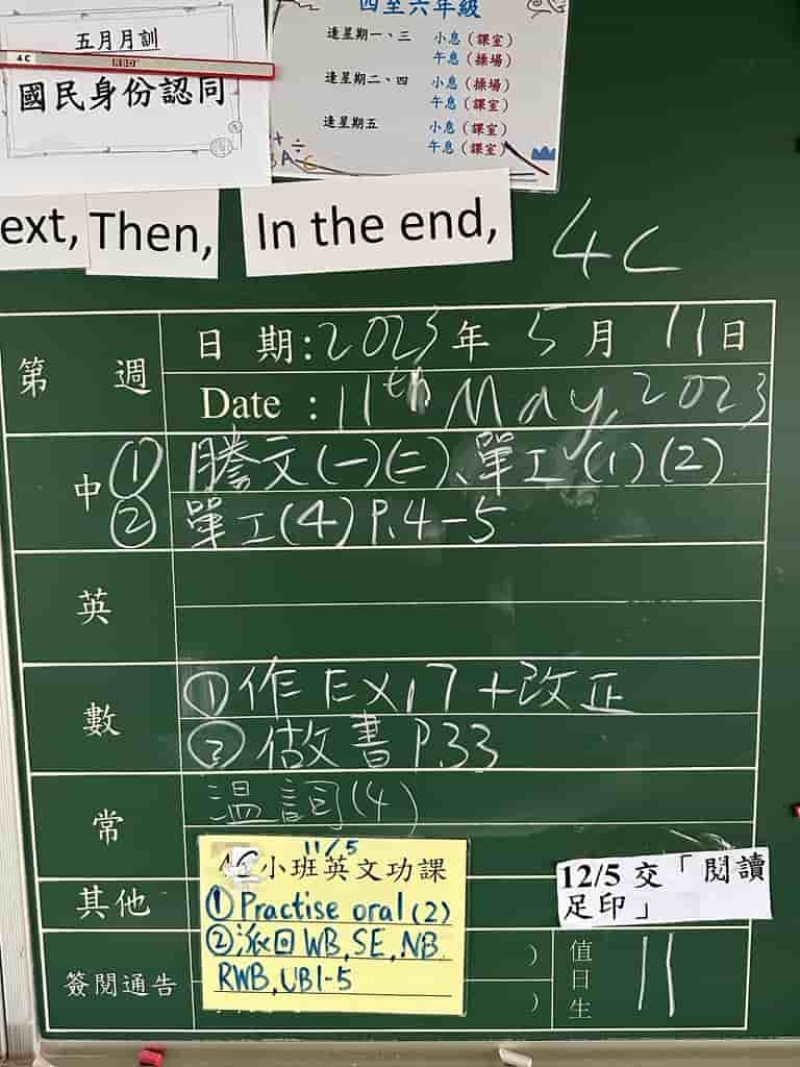 五月月訓
4C
國民身份認同
四至六年級
逢星期一、三 小息（課室）
午息（操場）
逢星期二、四 小息（操場）
午息（課室）
逢星期五 小息（課室）
午息（課室）
ext, Then, In the end,
4C
第 週
日 期:2023年 5月 11日
Date : 11th May, 2023
中 ① 謄文(一)(二)、單工(1)(2)
② 單工(4) P.4-5
英
數 ①作 EX17+改正
② 做書 P.33
常 溫詞(4)
其他
11/5
4C小班英文功課
①Practise oral (2)
②派回 WB, SE, NB
RWB, UB1-5
12/5 交「閱讀
足印」
簽閱通告 )
)
值日生 11